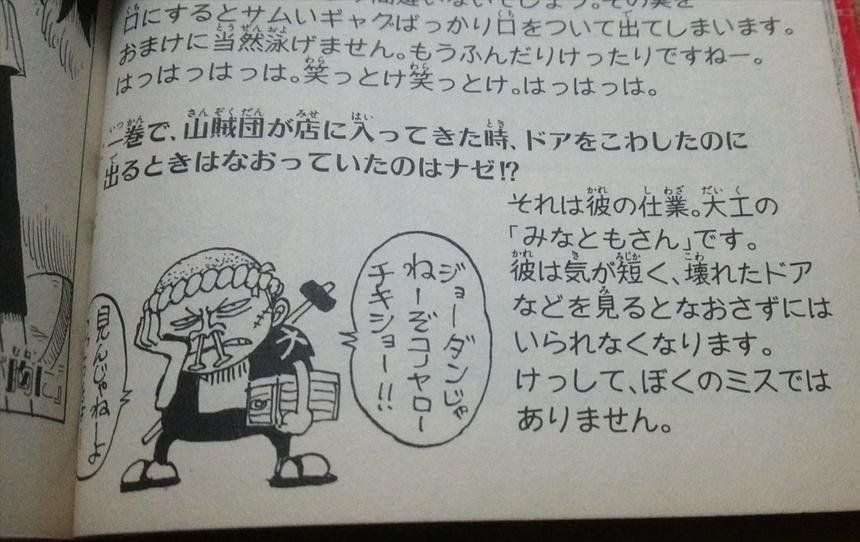 口にするとサムいギャグばっかり口をついて出てしまいます。
おまけに当然泳げません。もうふんだりけったりですねー。
はっはっはっは。笑っとけ笑っとけ。はっはっは。
一巻で、山賊団が店に入ってきた時、ドアをこわしたのに
出るときはなおっていたのはナゼ!?
それは彼の仕業。大工の
「みなともさん」です。
彼は気が短く、壊れたドア
などを見るとなおさずには
いられなくなります。
けっして、ぼくのミスでは
ありません。
ジョーダンじゃ
ねーぞコノヤロー
チキショー!!
大
見んじゃねーよ